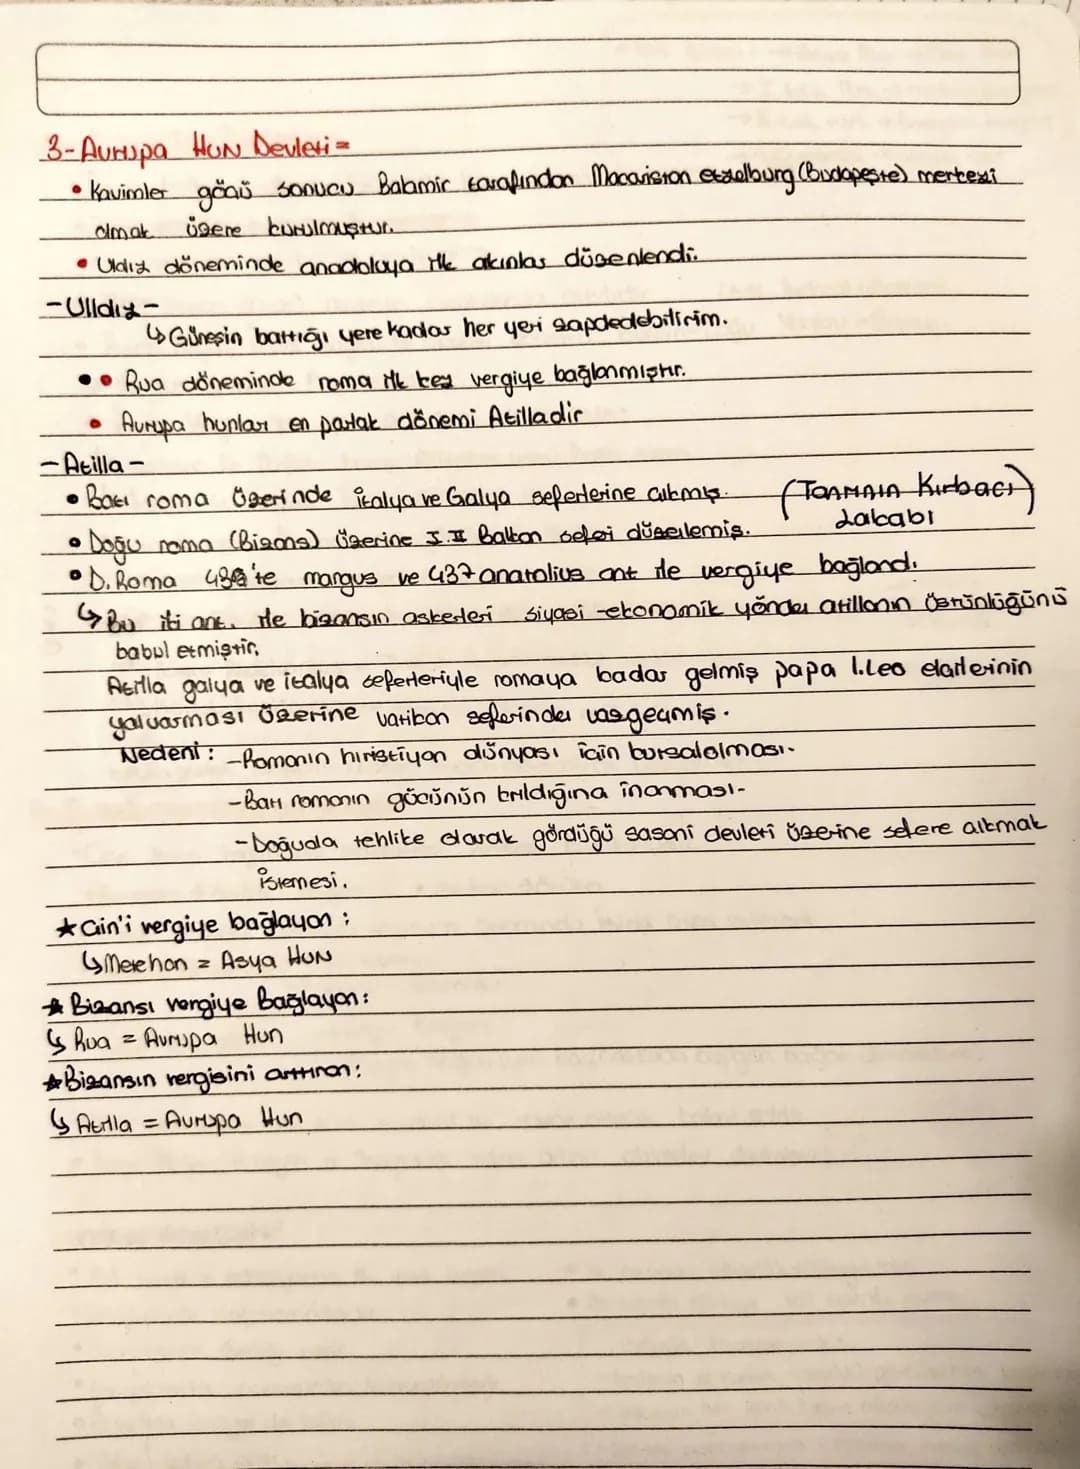 3-Avrupa Hun Devleti =
• Kavimler göçü sonucu Balamir tarafından Macaristan etzelburg (Budapeşte) merkezi
olmak üzere kurulmuştur.
• Uldız döneminde anadoluya ilk akınlar düzenlendi.
- Ulldız -
↳ Güneşin battığı yere kadar her yeri zapdedebilirim.
• • Rua döneminde roma ilk kez vergiye bağlanmıştır.
• Avrupa hunları en parlak dönemi Atilladir
- Atilla -
• Batı roma üzerinde italya ve Galya seferlerine çıkmış. (Tanrının Kırbacı)
Lakabı
• Doğu roma (Bizans) üzerine I. II Balkan seferi düzelemiş.
• D. Roma 434'te margus ve 437 anatolius ant ile vergiye bağlandı.
↳ Bu iki ant. ile bizansın askerleri siyasi -ekonomik yönden atillanın üstünlüğünü
babul etmiştir.
Atilla galya ve italya seferleriyle romaya kadar gelmiş papa I.Leo elçilerinin
yalvarması üzerine vatikan seferinden vazgeçmiş.
Nedeni : -Romanın hıristiyan dünyası için kutsalolması.
-Batı romanın gücünün kırıldığına inanması-
-Doğuda tehlike olarak gördüğü sasani devleti üzerine sefere çıkmak
istemesi.
★ Çin'i vergiye bağlayan :
↳ Metehan = Asya Hun
★ Bizansı vergiye Bağlayan:
↳ Rua = Avrupa Hun
★ Bizansın vergisini arttıran:
↳ Atilla = Avrupa Hun